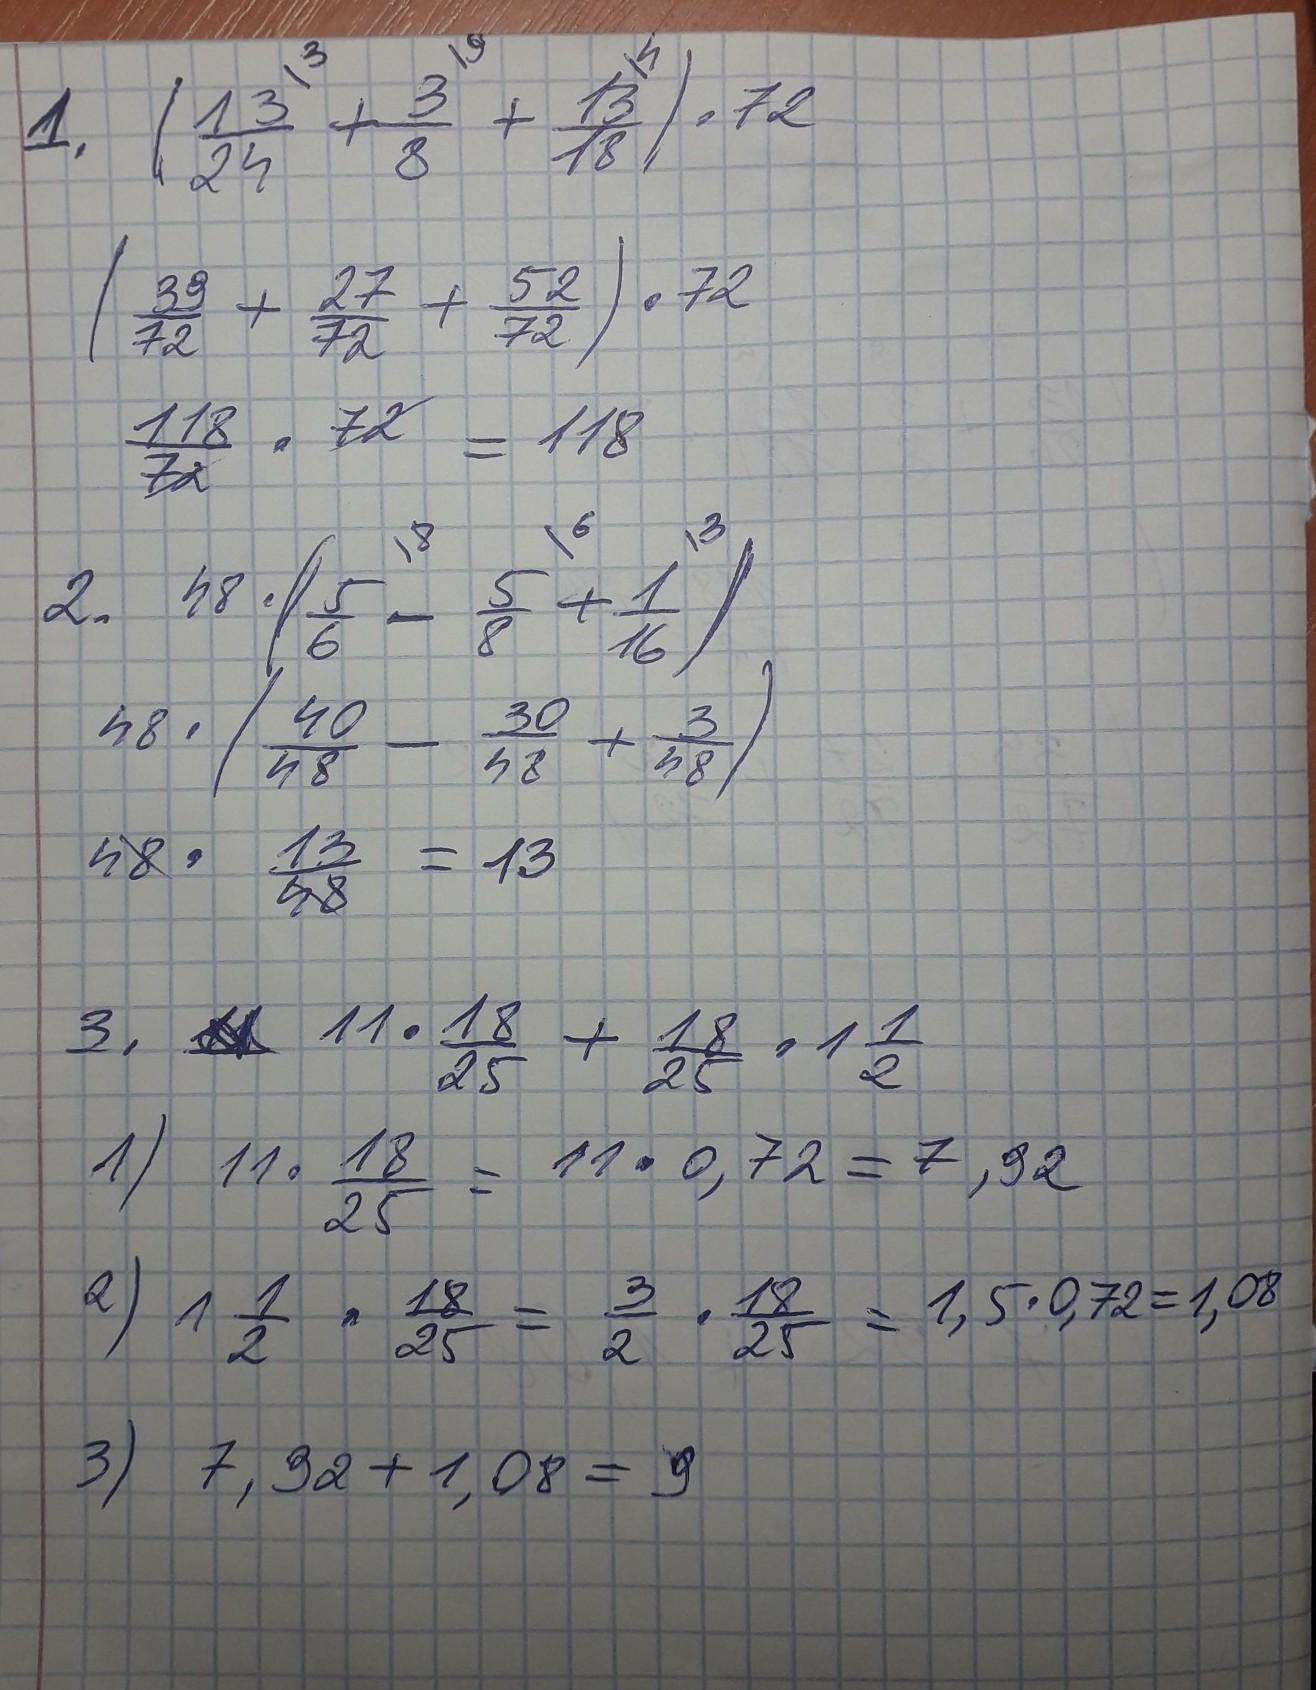 1. (13/24 \3 + 3/8 \9 + 13/18 \4) · 72
(39/72 + 27/72 + 52/72) · 72
118/72 · 72 = 118
2. 48 · (5/6 \8 − 5/8 \6 + 1/16 \3)
48 · (40/48 − 30/48 + 3/48)
48 · 13/48 = 13
3. 11 · 18/25 + 18/25 · 1 1/2
1) 11 · 18/25 = 11 · 0,72 = 7,92
2) 1 1/2 · 18/25 = 3/2 · 18/25 = 1,5 · 0,72 = 1,08
3) 7,92 + 1,08 = 9